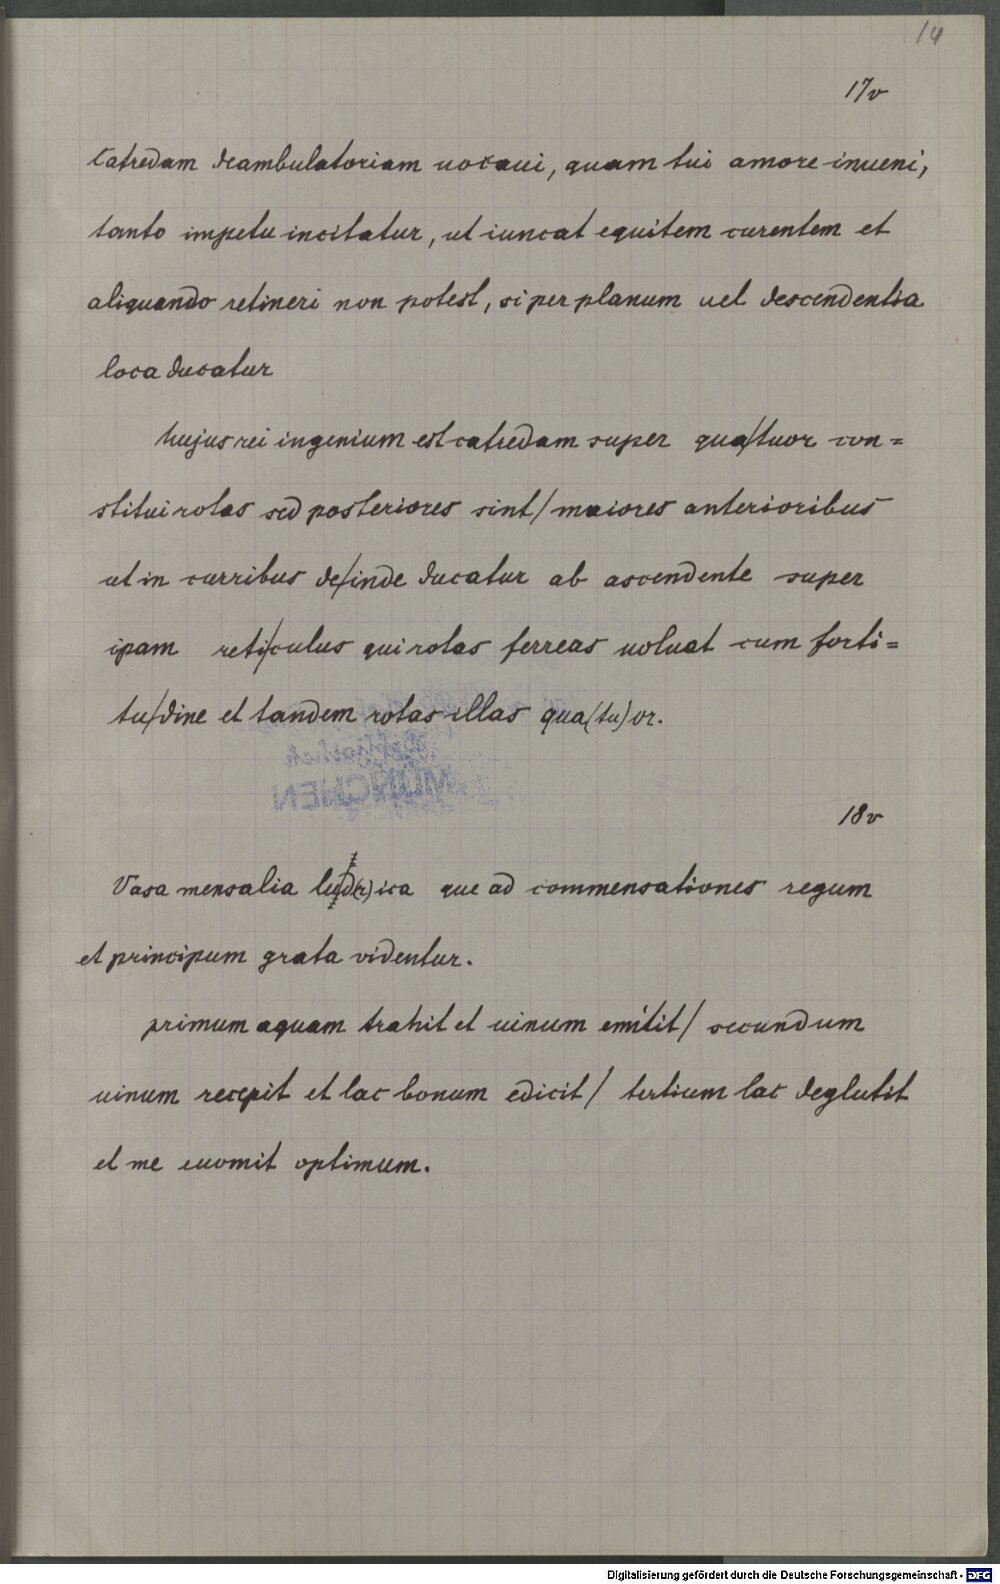 14
17v
Catredam deambulatoriam uocaui, quam tui amore inueni,
tanto impetu incitatur, ut iuncat equitem curentem et
aliquando retineri non potest, si per planum uel descendentia
loca ducatur
hujus rei ingenium est catredam super qua/tuor con=
stitui rotas sed posteriores sint/maiores anterioribus
ut in curribus de/inde ducatur ab ascendente super
ipam reti/culus qui rotas ferreas uoluat cum forti=
tu/dine et tandem rotas illas qua(tu)or.
Bibliothek
MÜNCHEN
18v
Vasa mensalia lud(r)ica que ad commensationes regum
et principum grata videntur.
primum aquam trahit et uinum emitit/ secundum
uinum recepit et lac bonum edicit/ tertium lac deglutit
et me euomit optimum.
Digitalisierung gefördert durch die Deutsche Forschungsgemeinschaft - DFG